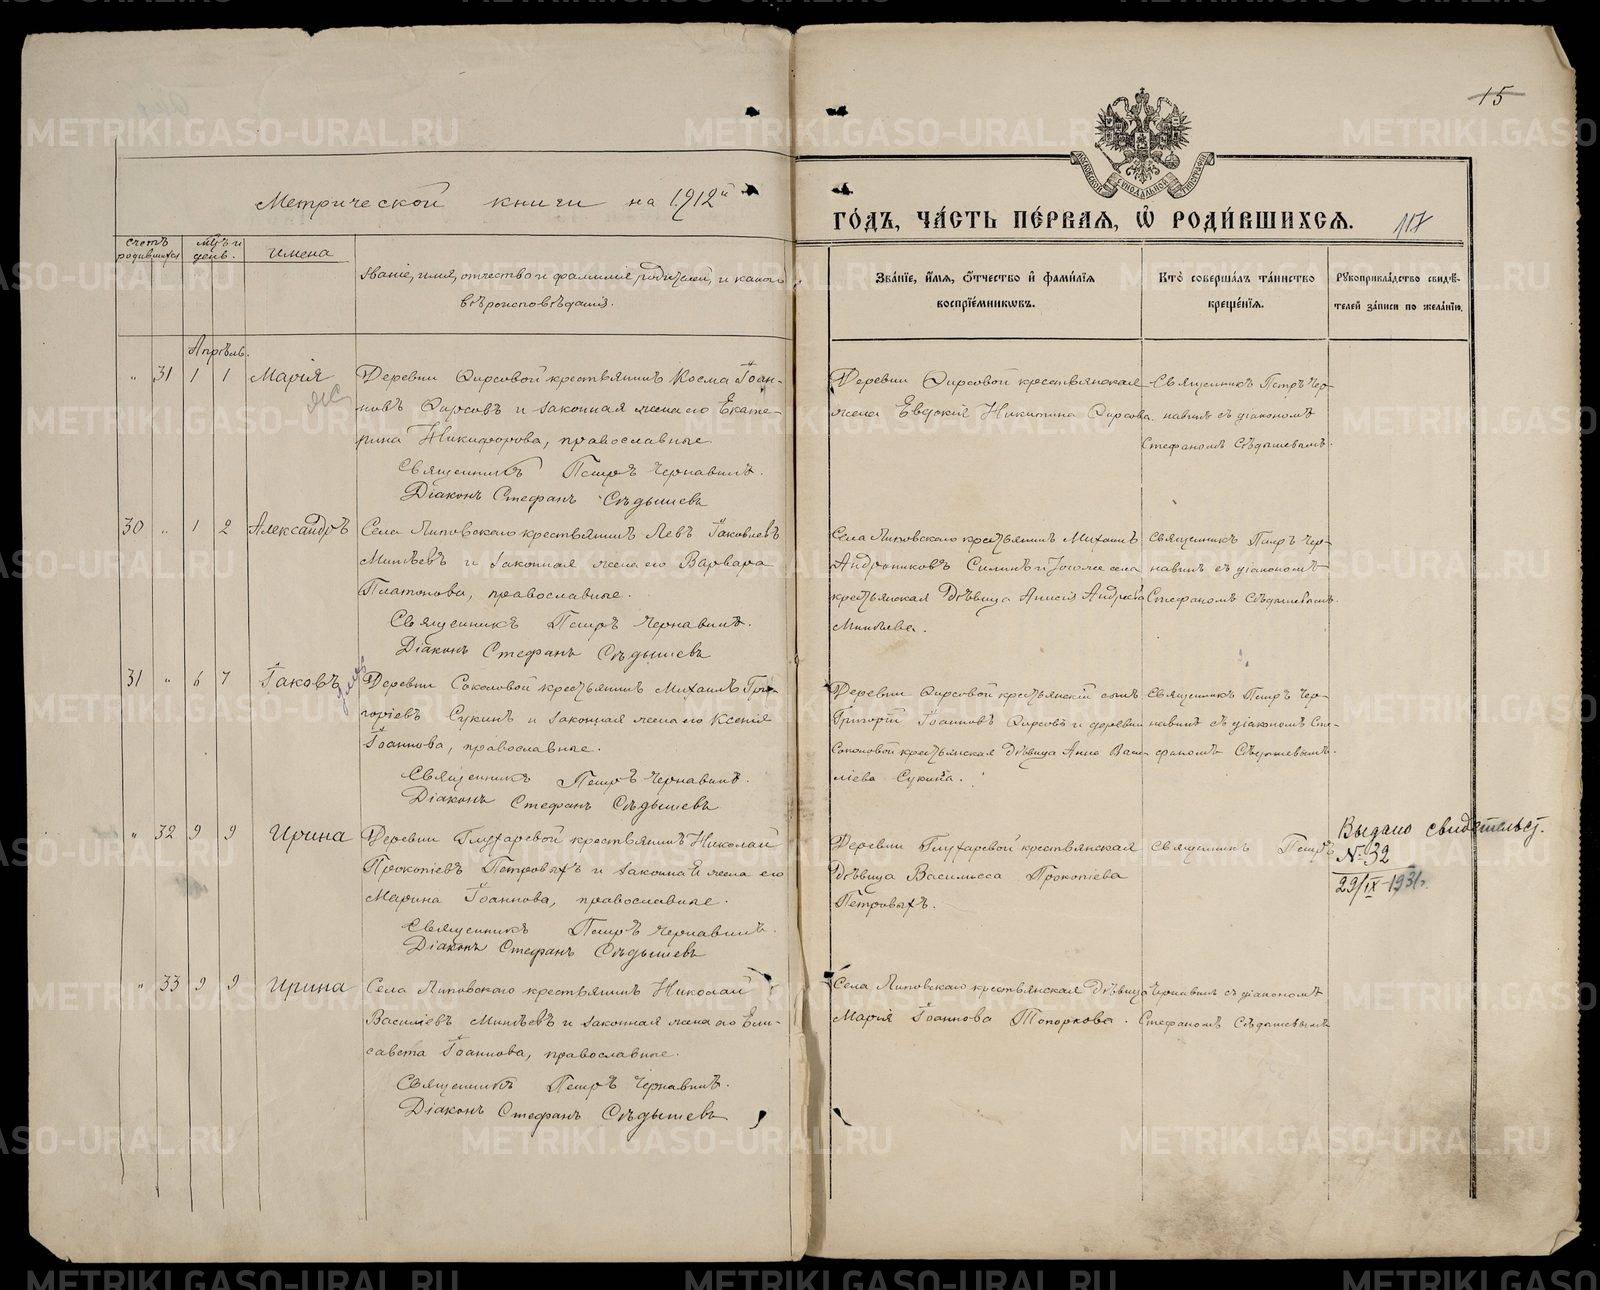 15
Метрической книги на 1912й
ГО́ДЪ, ЧА́СТЬ ПЕ́РВАЯ, Ѡ҆ РОДИ́ВШИХСЯ.
117
счетъ родившихся
мц̃ъ и день.
имена
Званіе, имя, отчество и фамилія, родителей, и какого
вѣроисповѣданія.
Зва́нїе, и҆́мя, ѻ҆́тчество и҆ фами́лїя
воспрїе́мниковъ.
Кто̀ соверша́лъ та́инство
креще́нїя.
Рꙋкоприкла́дство свидѣ́-
телей за́писи по жела́нїю.
Апрѣль.
" 31 1 1 Марія
Деревни Фирсовой крестьянинъ Косма Іоан-
новъ Фирсовъ и законная жена его Екате-
рина Никифорова, православные.
Священникъ Петръ Чернавинъ.
Діаконъ Стефанъ Сѣдышевъ
Деревни Фирсовой крестьянская
жена Евдокія Никитина Фирсова.
Священникъ Петръ Чер-
навинъ съ діакономъ
Стефаномъ Сѣдышевымъ.
30 " 1 2 Александръ
Села Липовскаго крестьянинъ Левъ Іаковлевъ
Минѣевъ и законная жена его Варвара
Платонова, православные.
Священникъ Петръ Чернавинъ.
Діаконъ Стефанъ Сѣдышевъ
Села Липовскаго крестьянинъ Михаилъ
Андрониковъ Силинъ и тогоже села
крестьянская дѣвица Анисія Андреева
Минѣева.
Священникъ Петръ Чер-
навинъ съ діакономъ
Стефаномъ Сѣдышевымъ.
31 " 6 7 Іаковъ
Деревни Соколовой крестьянинъ Михаилъ Гри-
горіевъ Сукинъ и законная жена его Ксенія
Іоаннова, православные.
Священникъ Петръ Чернавинъ.
Діаконъ Стефанъ Сѣдышевъ
Деревни Фирсовой крестьянскій сынъ
Григорій Іоанновъ Фирсовъ и деревни
Соколовой крестьянская дѣвица Анна Васи-
ліева Сукина.
Священникъ Петръ Чер-
навинъ съ діакономъ Сте-
фаномъ Сѣдышевымъ.
" 32 9 9 Ирина
Деревни Глухаревой крестьянинъ Николай
Прокопіевъ Петровыхъ и законная жена его
Марина Іоаннова, православные.
Священникъ Петръ Чернавинъ.
Діаконъ Стефанъ Сѣдышевъ
Деревни Глухаревой крестьянская
дѣвица Васильсса Прокопіева
Петровыхъ.
Священникъ Петръ
Выдано свидетельст.
№ 32
29/IX-1931г.
" 33 9 9 Ирина
Села Липовскаго крестьянинъ Николай
Василіевъ Минѣевъ и законная жена его Ели-
савета Іоаннова, православные.
Священникъ Петръ Чернавинъ.
Діаконъ Стефанъ Сѣдышевъ
Села Липовскаго крестьянская дѣвица
Марія Іоаннова Топоркова.
Чернавинъ съ діакономъ
Стефаномъ Сѣдышевымъ
METRIKI.GASO-URAL.RU